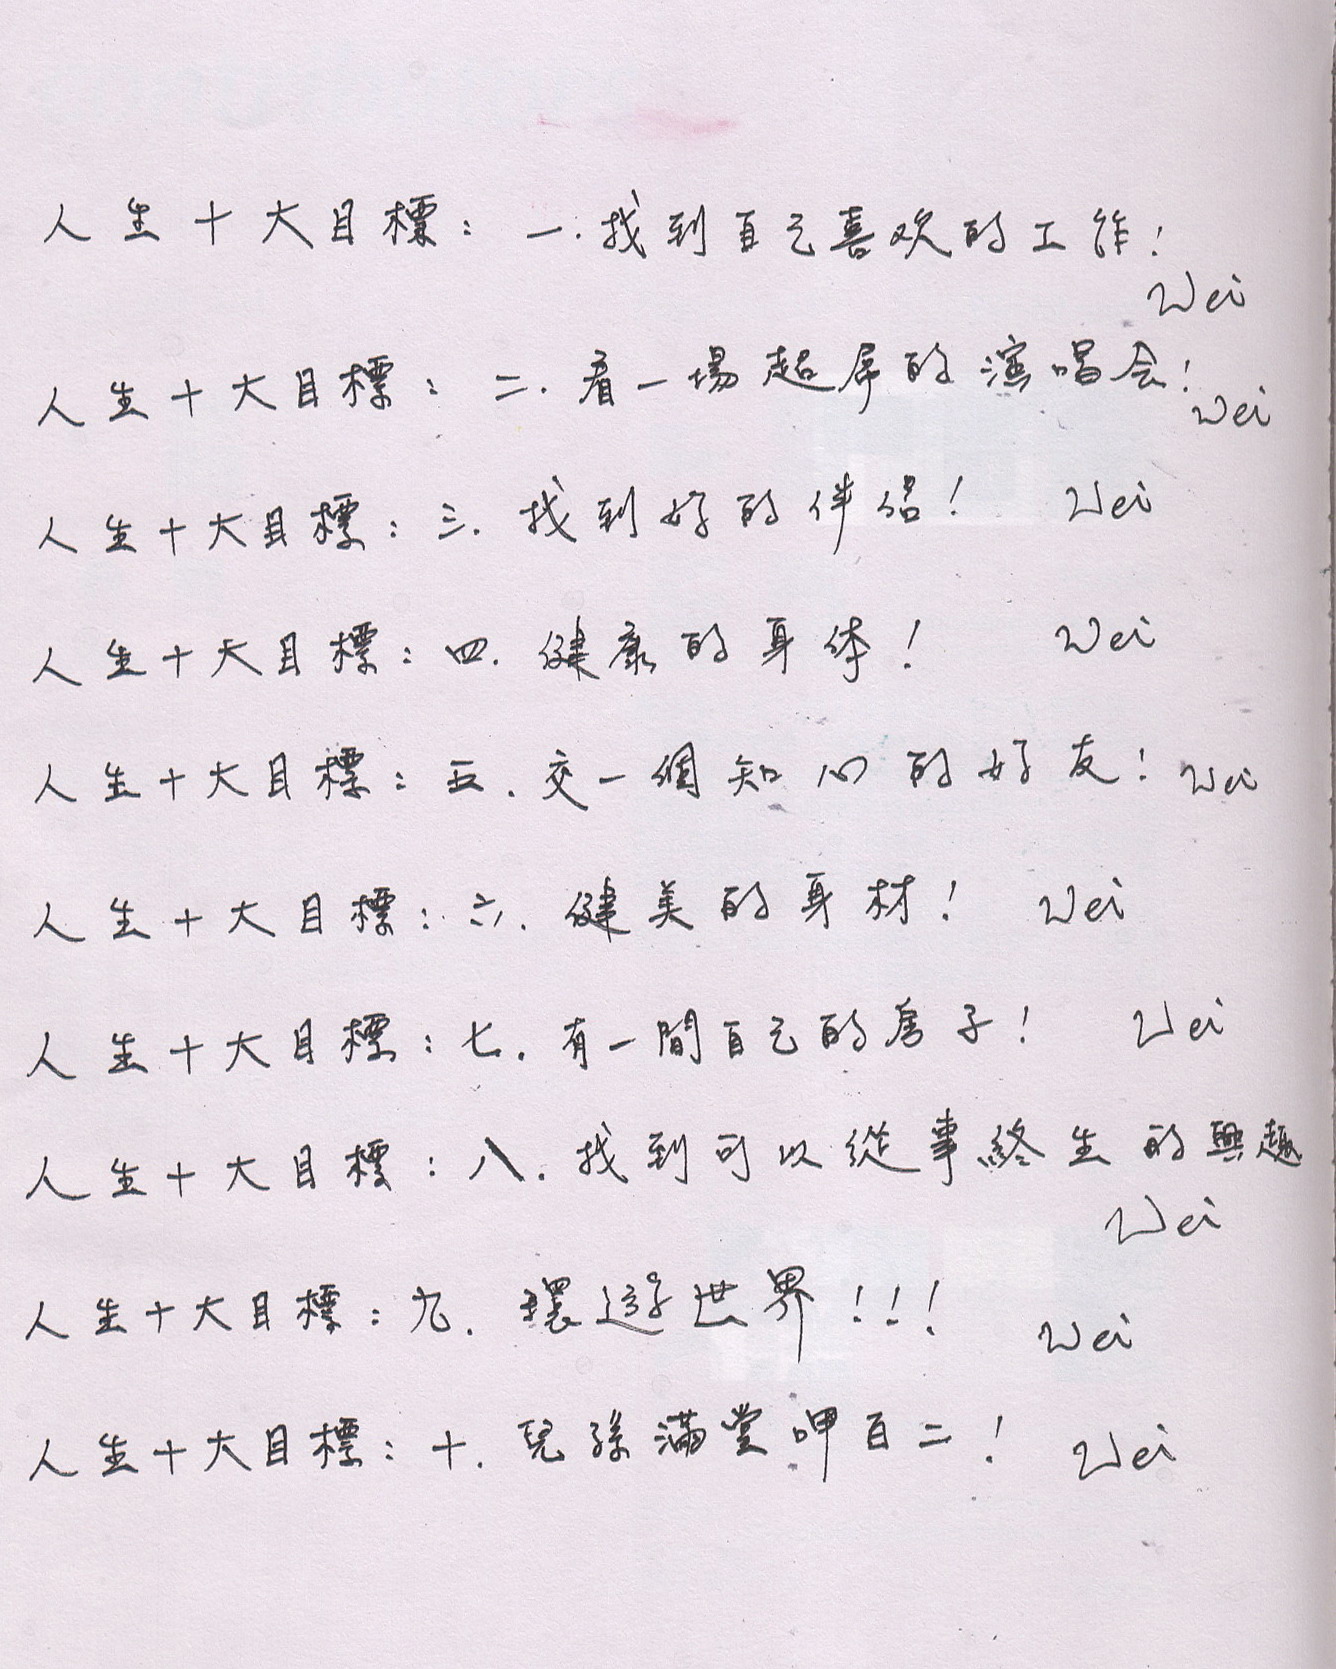 人生十大目標：一.找到自己喜欢的工作！
Wei
人生十大目標：二.看一場超屌的演唱会！
Wei
人生十大目標：三.找到好的伴侶！ Wei
人生十大目標：四.健康的身体！ Wei
人生十大目標：五.交一個知心的好友！ Wei
人生十大目標：六.健美的身材！ Wei
人生十大目標：七.有一間自己的房子！ Wei
人生十大目標：八.找到可以從事終生的興趣
Wei
人生十大目標：九.環遊世界！！！ Wei
人生十大目標：十.兒孫滿堂呷百二！ Wei